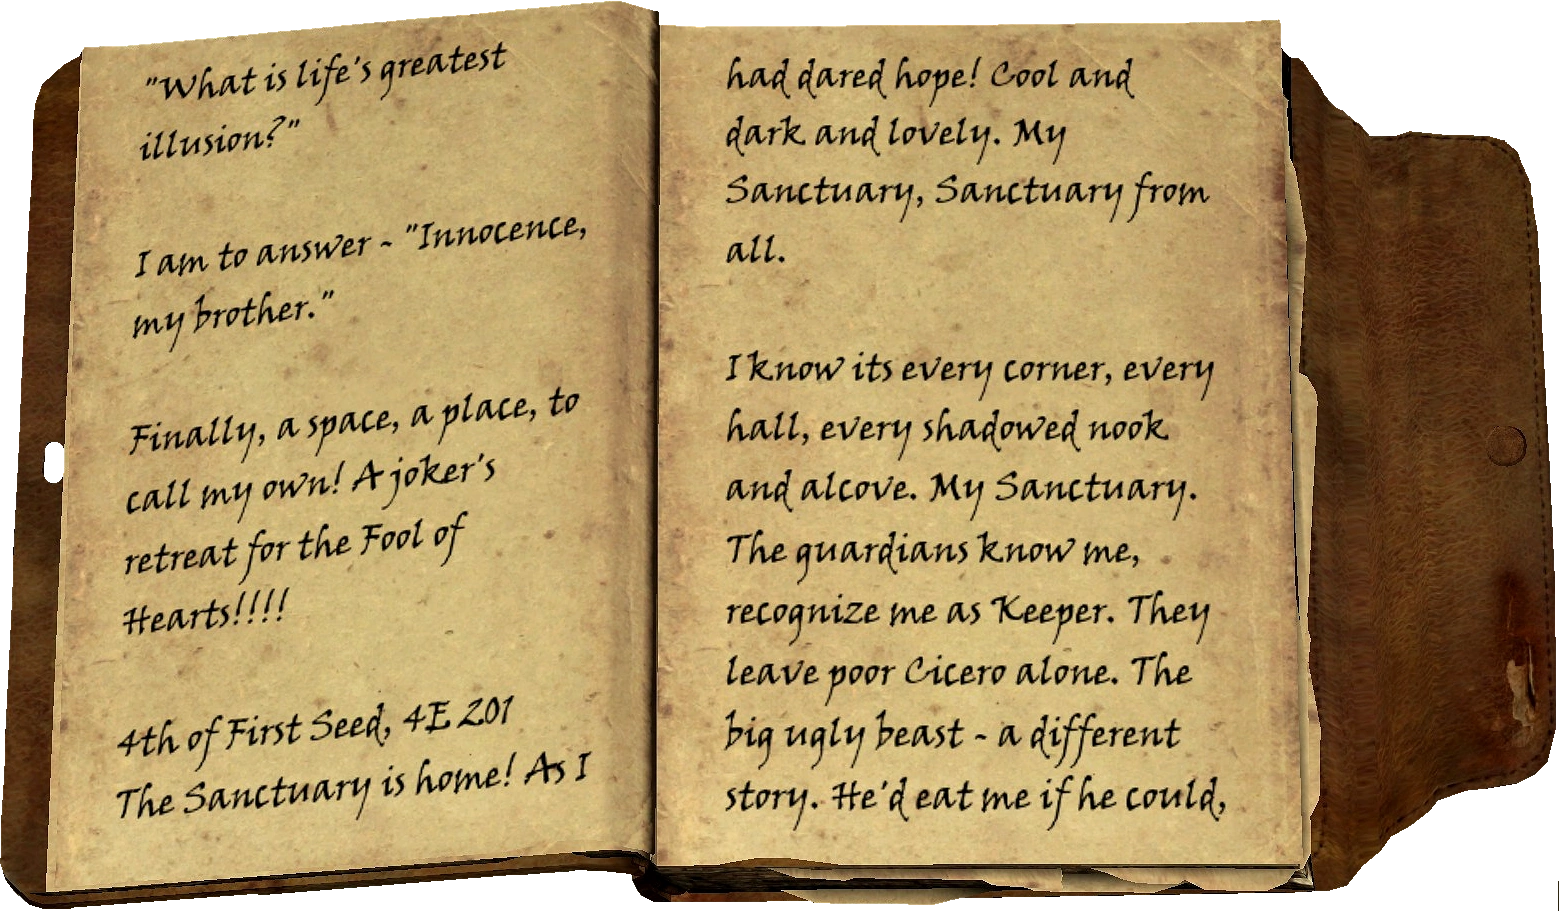 "What is life's greatest
illusion?"
I am to answer ~ "Innocence,
my brother."
Finally, a space, a place, to
call my own! A joker's
retreat for the Fool of
Hearts!!!!
4th of First Seed, 4E 201
The Sanctuary is home! As I
had dared hope! Cool and
dark and lovely. My
Sanctuary, Sanctuary from
all.
I know its every corner, every
hall, every shadowed nook
and alcove. My Sanctuary.
The guardians know me,
recognize me as Keeper. They
leave poor Cicero alone. The
big ugly beast ~ a different
story. He'd eat me if he could,